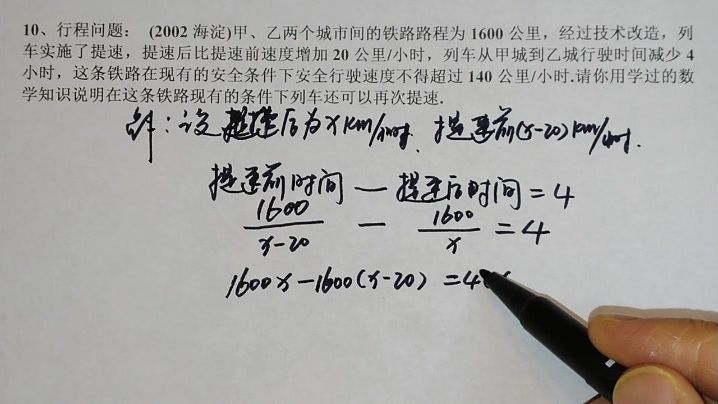 10、行程问题： (2002 海淀)甲、乙两个城市间的铁路路程为 1600 公里，经过技术改造，列
车实施了提速，提速后比提速前速度增加 20 公里/小时，列车从甲城到乙城行驶时间减少 4
小时，这条铁路在现有的安全条件下安全行驶速度不得超过 140 公里/小时.请你用学过的数
学知识说明在这条铁路现有的条件下列车还可以再次提速.
解：设提速后为 x km/小时. 提速前(x-20)km/小时.
提速前时间 — 提速后时间 = 4
1600/(x-20) — 1600/x = 4
1600x-1600(x-20) =4